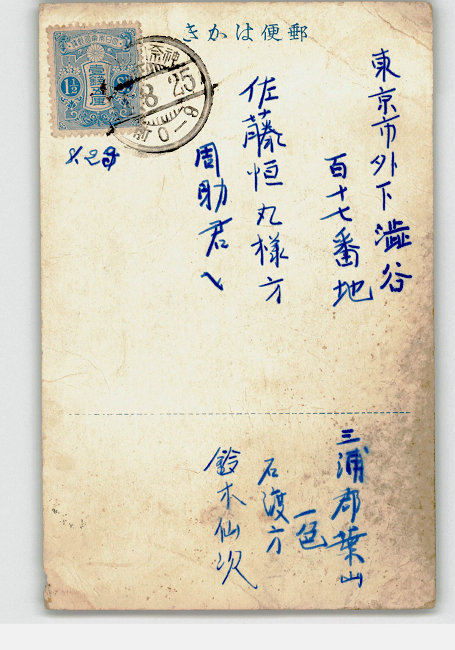 きかは便郵
東京市外下澁谷
百十七番地
佐藤恒丸様方
周助君へ
三浦郡葉山
一色
石渡方
鈴木仙次
大日本帝國郵便
壹錢五厘
1½
8 25